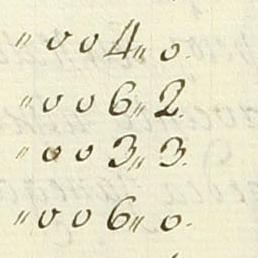 " 0 0 4 " 0.
" 0 0 6 " 2.
" 0 0 3 " 3.
" 0 0 6 " 0.